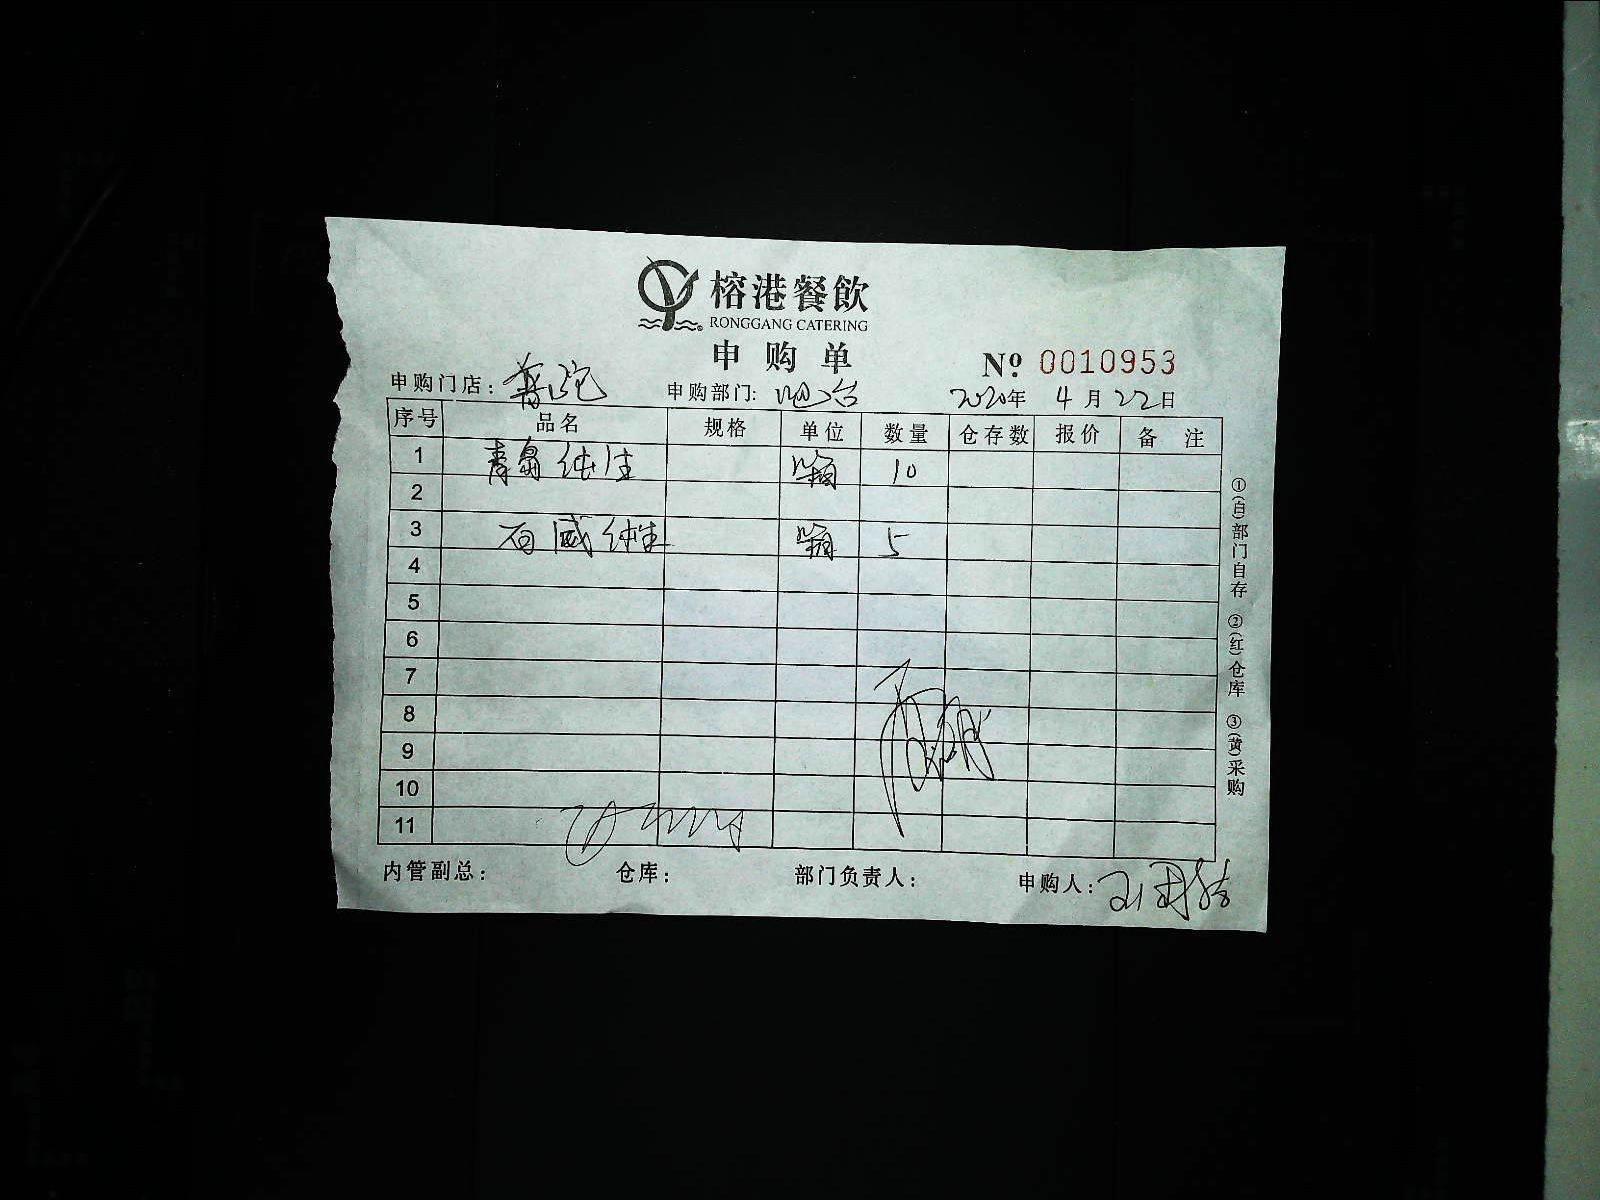 榕港餐飲
RONGGANG CATERING
申购单
№ 0010953
申购门店: 普陀 申购部门: 吧台 2020年 4月22日
序号 品名 规格 单位 数量 仓存数 报价 备注
1 青岛纯生 箱 10
2
3 百威纯生 箱 5
4
5
6
7
8
9
10
11
内管副总: 仓库: 部门负责人: 申购人:
①(白)部门自存 ②(红)仓库 ③(黄)采购